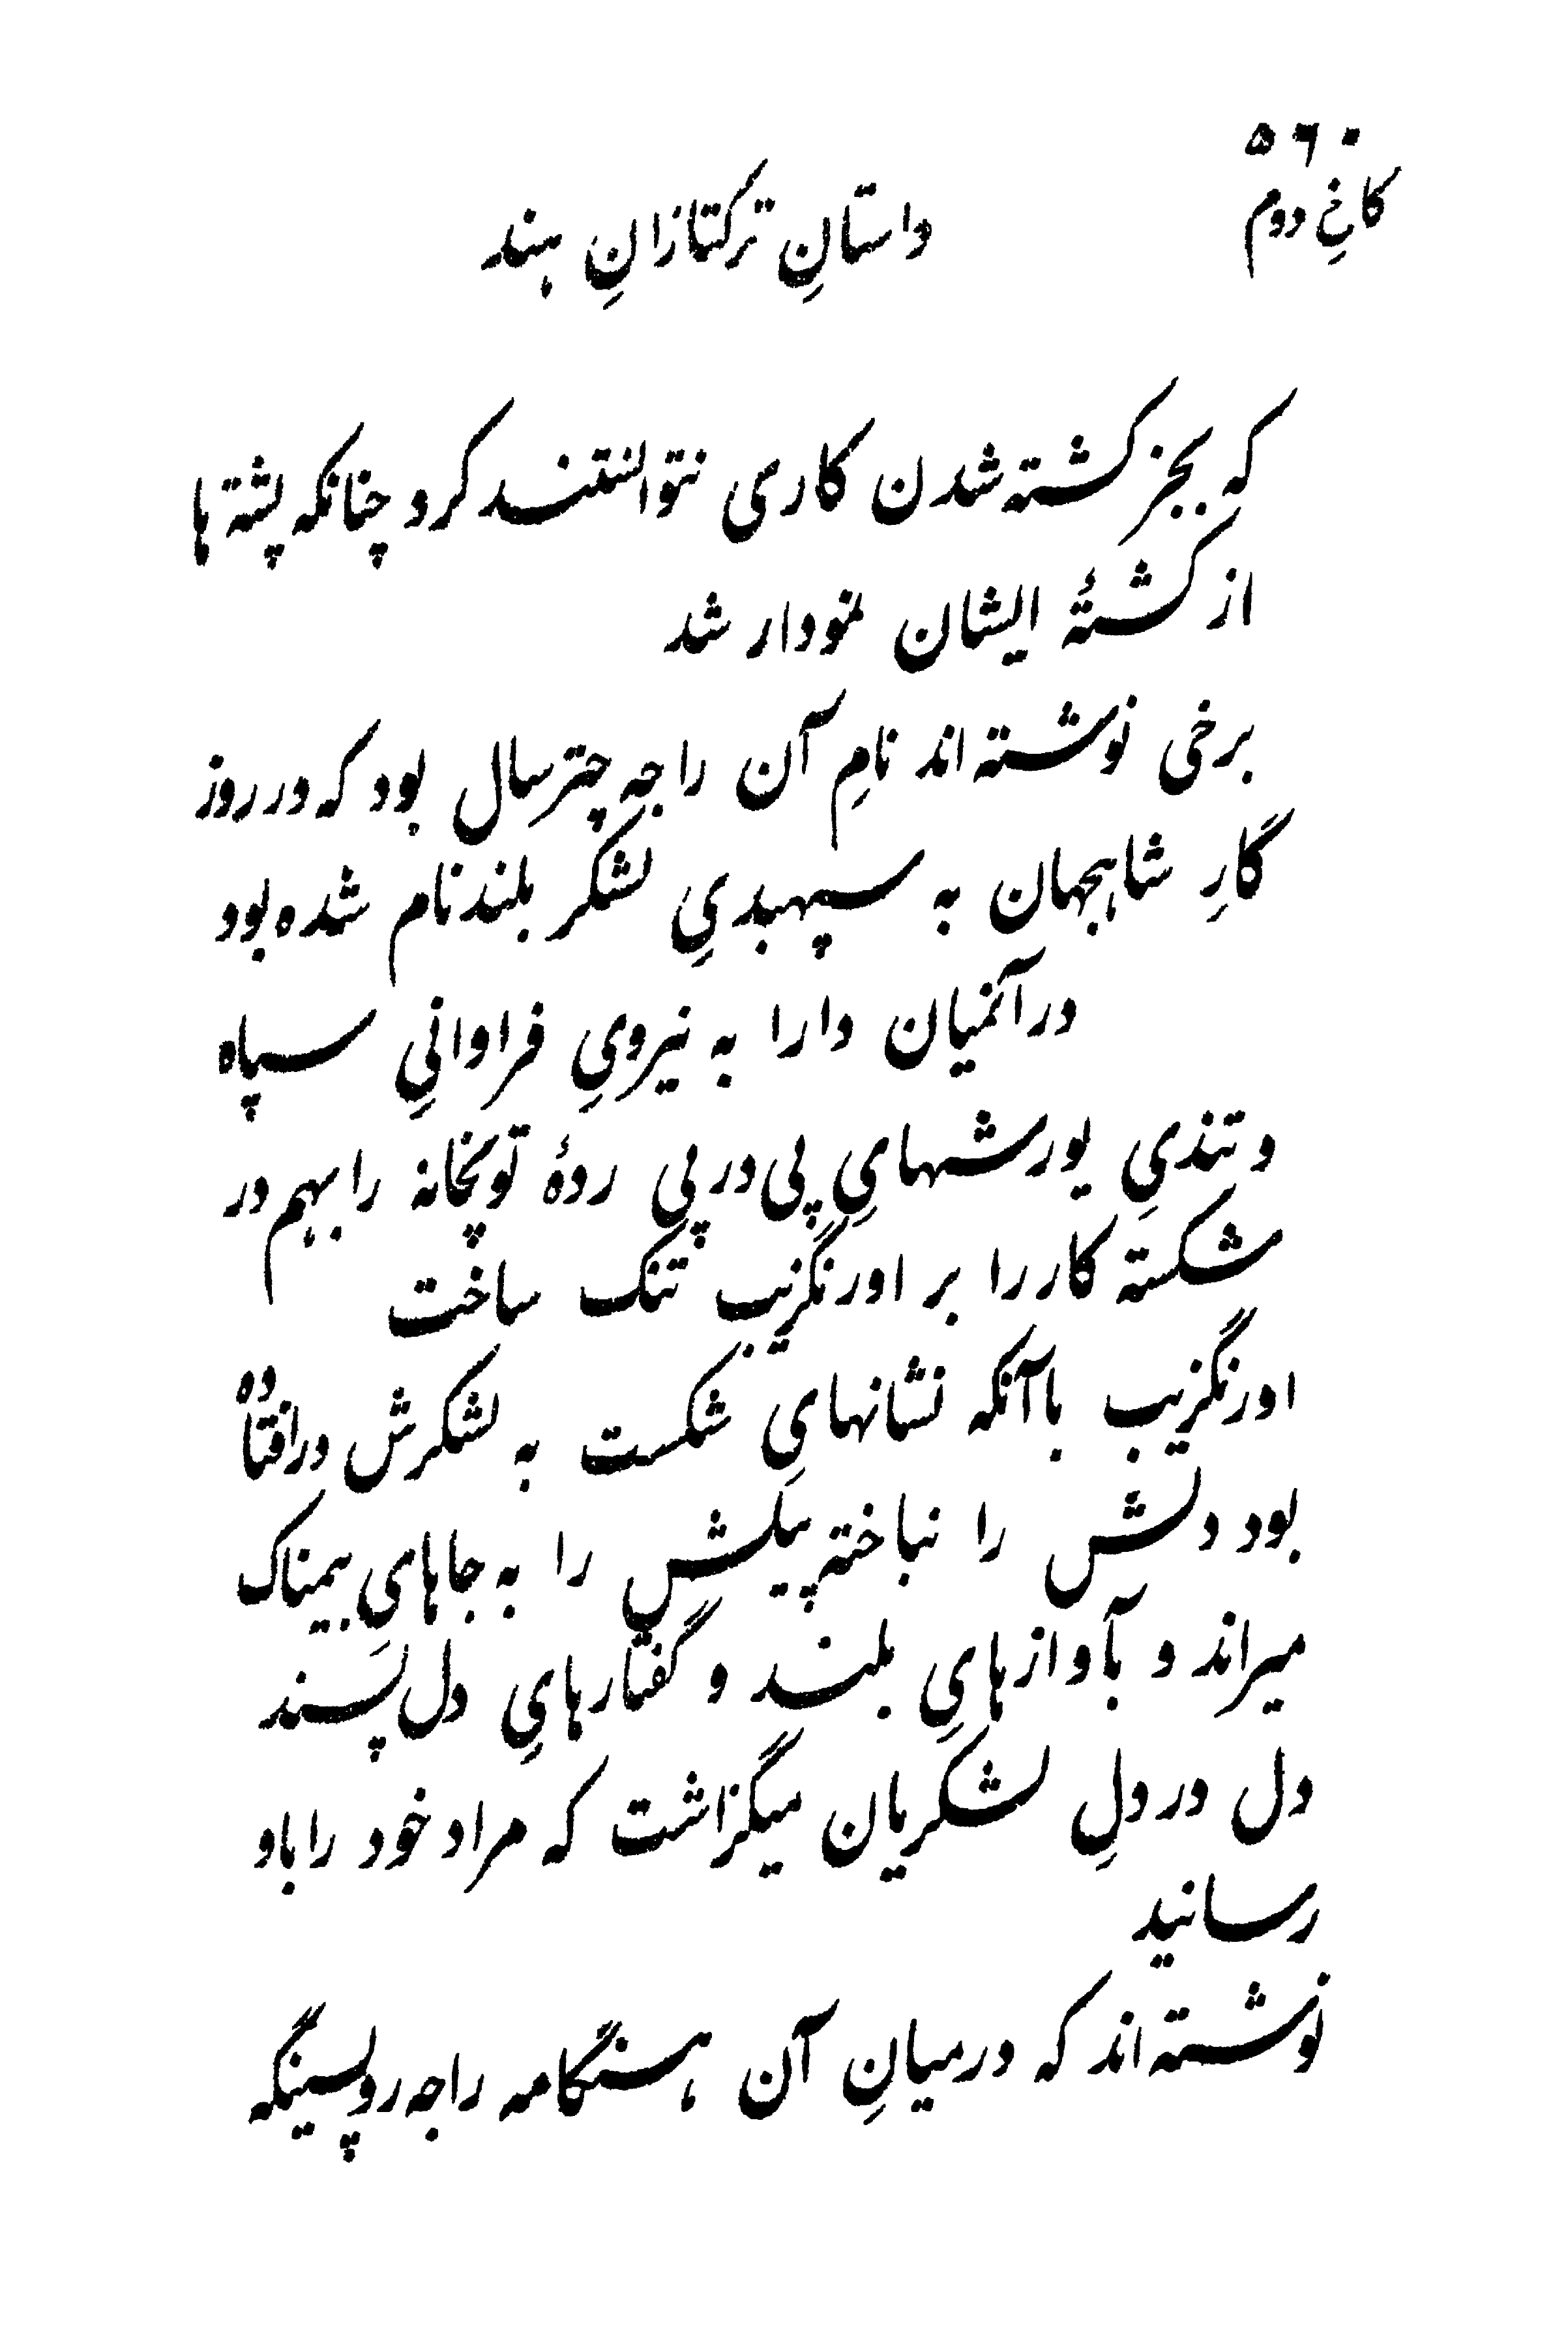 ۵۶۰
کاخِ دوم
داستانِ ترکتازانِ ہند
کہ بجز کشتہ شدن کاری نتوانستند کرد چنانکہ پشتہ ہا
از کشتۂ ایشان نمودار شد
برخی نوشتہ اند نامِ آن راجہ چترسال بود کہ در روز
گارِ شاہجہان بہ سپہبدیِ لشکر بلند نام شدہ بود
در آنمیان دارا بہ نیرویِ فراوانیِ سپاہ
و تندیِ یورشہایِ پی در پی ردۂ توپخانہ را بہم در
شکستہ کار را بر اورنگزیب تنک ساخت
اورنگزیب با آنکہ نشانہایِ شکست بہ لشکرش در افتادہ
بود دلش را نباختہ پیلش را بہ جاہایِ بیمناک
میراند و بآوازہایِ بلند و گفتارہایِ دل پسند
دل در دلِ لشکریان میگزاشت کہ مراد خود را باو
رسانید
نوشتہ اند کہ در میانِ آن ہنگامہ راجہ روپسینگہ